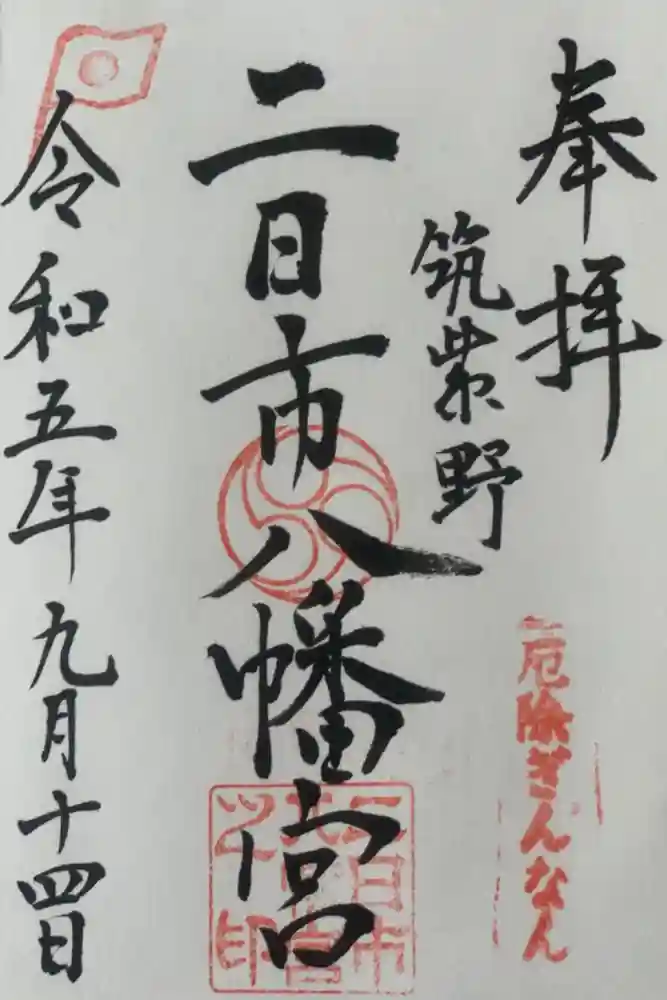 奉拝
筑紫野
厄除ぎんなん
二日市八幡宮
二日市八幡宮之印
令和五年九月十四日